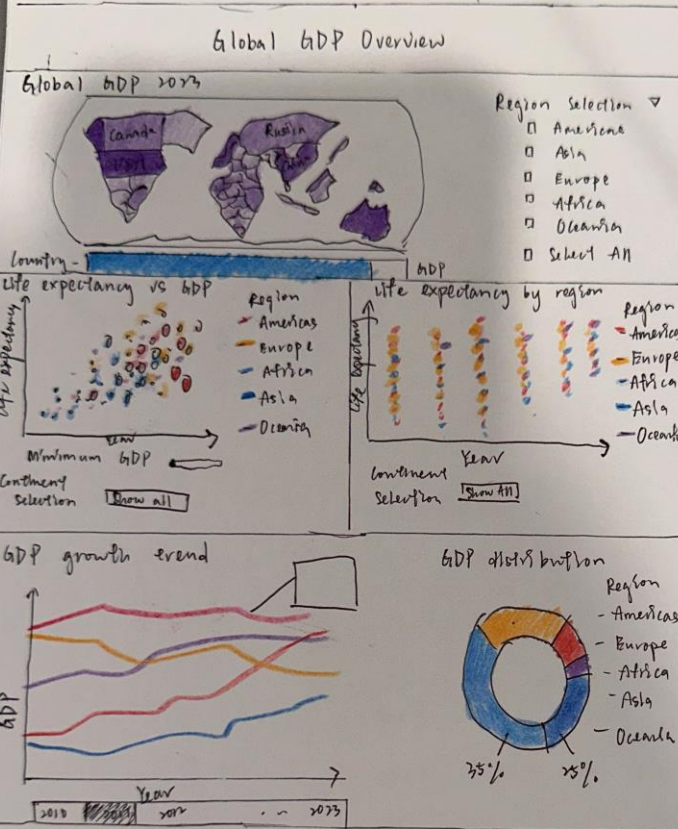 Global GDP Overview
Global GDP 2023
Canada
USA
Russia
Region Selection
Americas
Asia
Europe
Africa
Oceania
Select All
Country -
GDP
Life expectancy vs GDP
Life expectancy
Year
Region
Americas
Europe
Africa
Asia
Oceania
Minimum GDP
Continent
Selection
Show all
Life expectancy by region
Life expectancy
Year
Region
America
Europe
Africa
Asia
Oceani
Continent
Selection
Show All
GDP growth trend
GDP
Year
2010
2012
. . ~ 2023
GDP distribution
Region
- Americas
- Europe
- Africa
- Asia
- Oceania
35%
25%